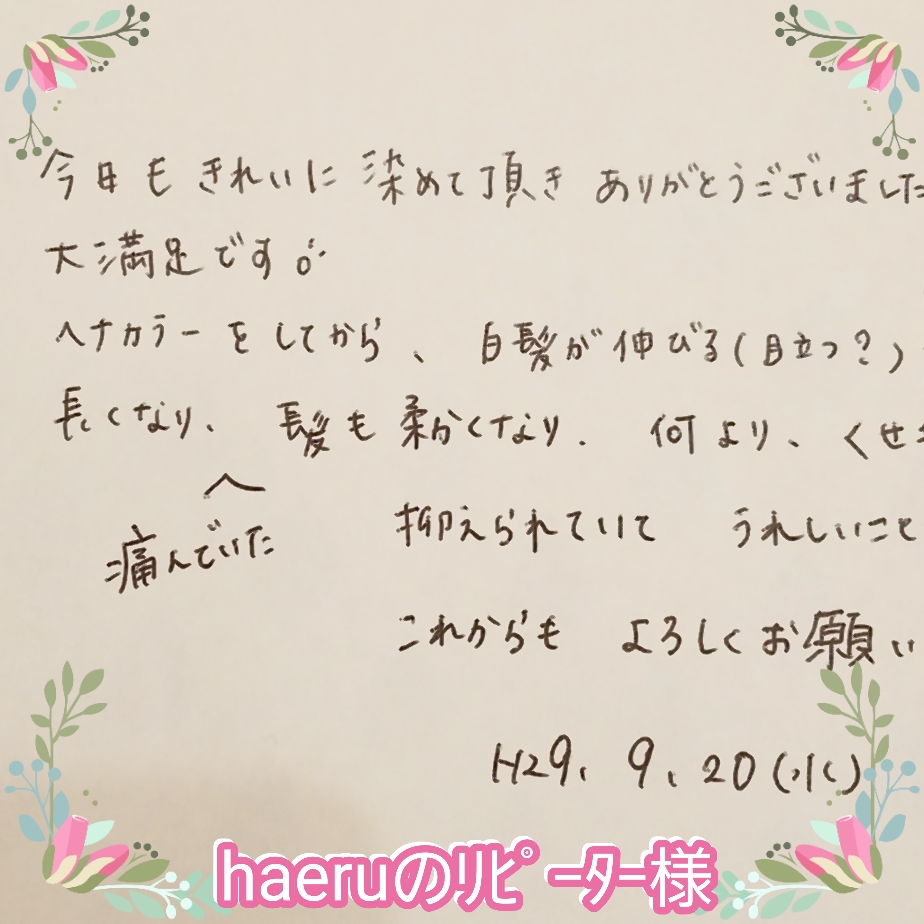 今日もきれいに染めて頂きありがとうございました
大満足です
ヘナカラーをしてから、白髪が伸びる(目立つ?)
長くなり、髪も柔かくなり、何より、くせ
痛んでいた
抑えられていて うれしいこと
これからも よろしくお願い
H29、9、20(水)
haeruのﾘﾋﾟｰﾀｰ様